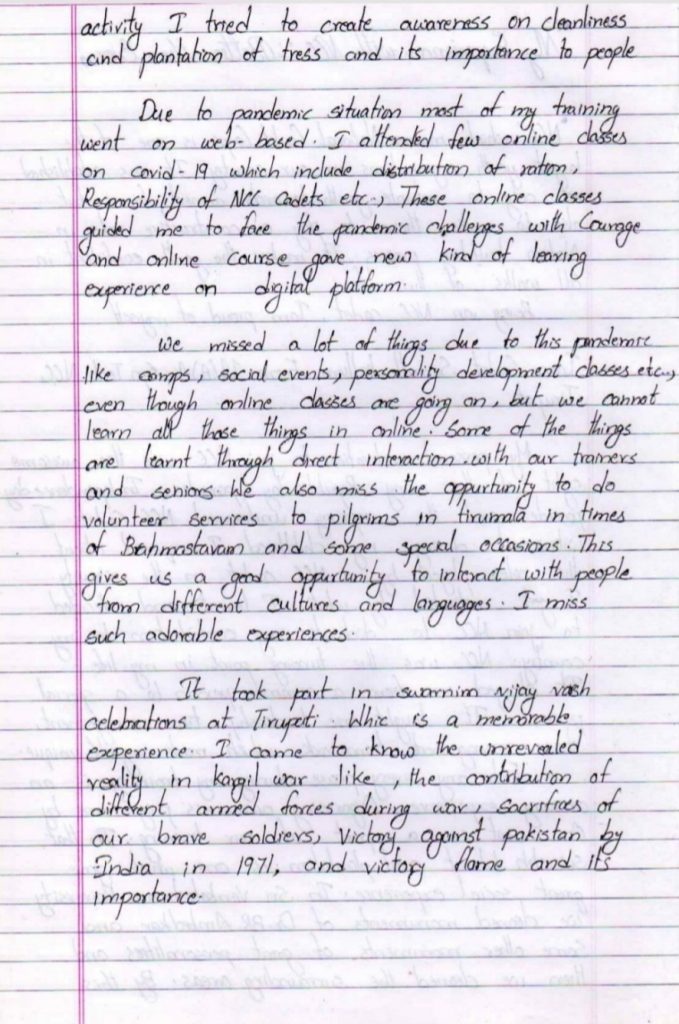 activity I tried to create awareness on cleanliness
and plantation of tress and its importance to people
Due to pandemic situation most of my training
went on web-based. I attended few online classes
on covid-19 which include distribution of ration,
Responsibility of NCC Cadets etc., These online classes
guided me to face the pandemic challenges with Courage
and online course gave new kind of learing
experience on digital platform.
We missed a lot of things due to this pandemic
like camps, social events, personality development classes etc.,
even though online classes are going on, but we cannot
learn all those things in online. Some of the things
are learnt through direct interaction with our trainers
and seniors. We also miss the oppurtunity to do
volunteer services to pilgrims in tirumala in times
of Brahmastavam and some special occasions. This
gives us a good oppurtunity to interact with people
from different cultures and languages. I miss
such adorable experiences.
It took part in swarnim vijay vash
celebrations at Tirupati. Whic is a memorable
experience. I came to know the unrevealed
reality in kargil war like, the contribution of
different armed forces during war, sacrifices of
our brave soldiers, Victory against pakistan by
India in 1971, and victory flame and its
importance.